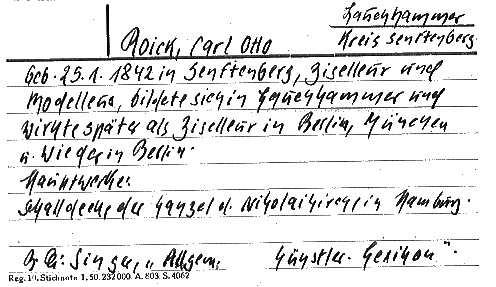 Lauchhammer
Roick, Carl Otto
Kreis Senftenberg
Geb. 25.1.1842 in Senftenberg, Ziselleur und
Modelleur, bildete sich in Lauchhammer und
wirkte später als Ziselleur in Berlin, München
u. wieder in Berlin.
Hauptwerke:
Schalldecke der Kanzel d. Nikolaikirche in Hamburg.
Singer, „Allgem. Künstler-Lexikon".
Reg. 1/I. Stichnote 1, 50. 232000. A. 803. S. 4062